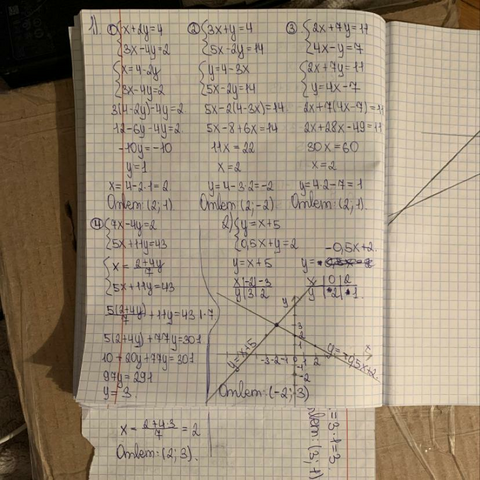 1) ① { x+2y=4
3x-4y=2
{ x=4-2y
3x-4y=2
3(4-2y)-4y=2
12-6y-4y=2
-10y=-10
y=1
x=4-2·1=2
Ответ: (2;1)
② { 3x+y=4
5x-2y=14
{ y=4-3x
5x-2y=14
5x-2(4-3x)=14
5x-8+6x=14
11x=22
x=2
y=4-3·2=-2
Ответ: (2;-2)
③ { 2x+7y=11
4x-y=7
{ 2x+7y=11
y=4x-7
2x+7(4x-7)=11
2x+28x-49=11
30x=60
x=2
y=4·2-7=1
Ответ: (2;1).
④ { 7x-4y=2
5x+11y=43
{ x=(2+4y)/7
5x+11y=43
5(2+4y)/7+11y=43 |·7
5(2+4y)+77y=301
10+20y+77y=301
97y=291
y=3
x=(2+4·3)/7=2
Ответ: (2;3).
2) { y=x+5
0,5x+y=2
y=x+5
x -2 -3
y 3 2
-0,5x+2
y=
x 0 2
y 2 1
y
3
2
1
-3 -2 -1 0 1 2
-2
y=x+5
y=-0,5x+2
Ответ: (-2;3)
=3-1=3
Ответ: (3;1)